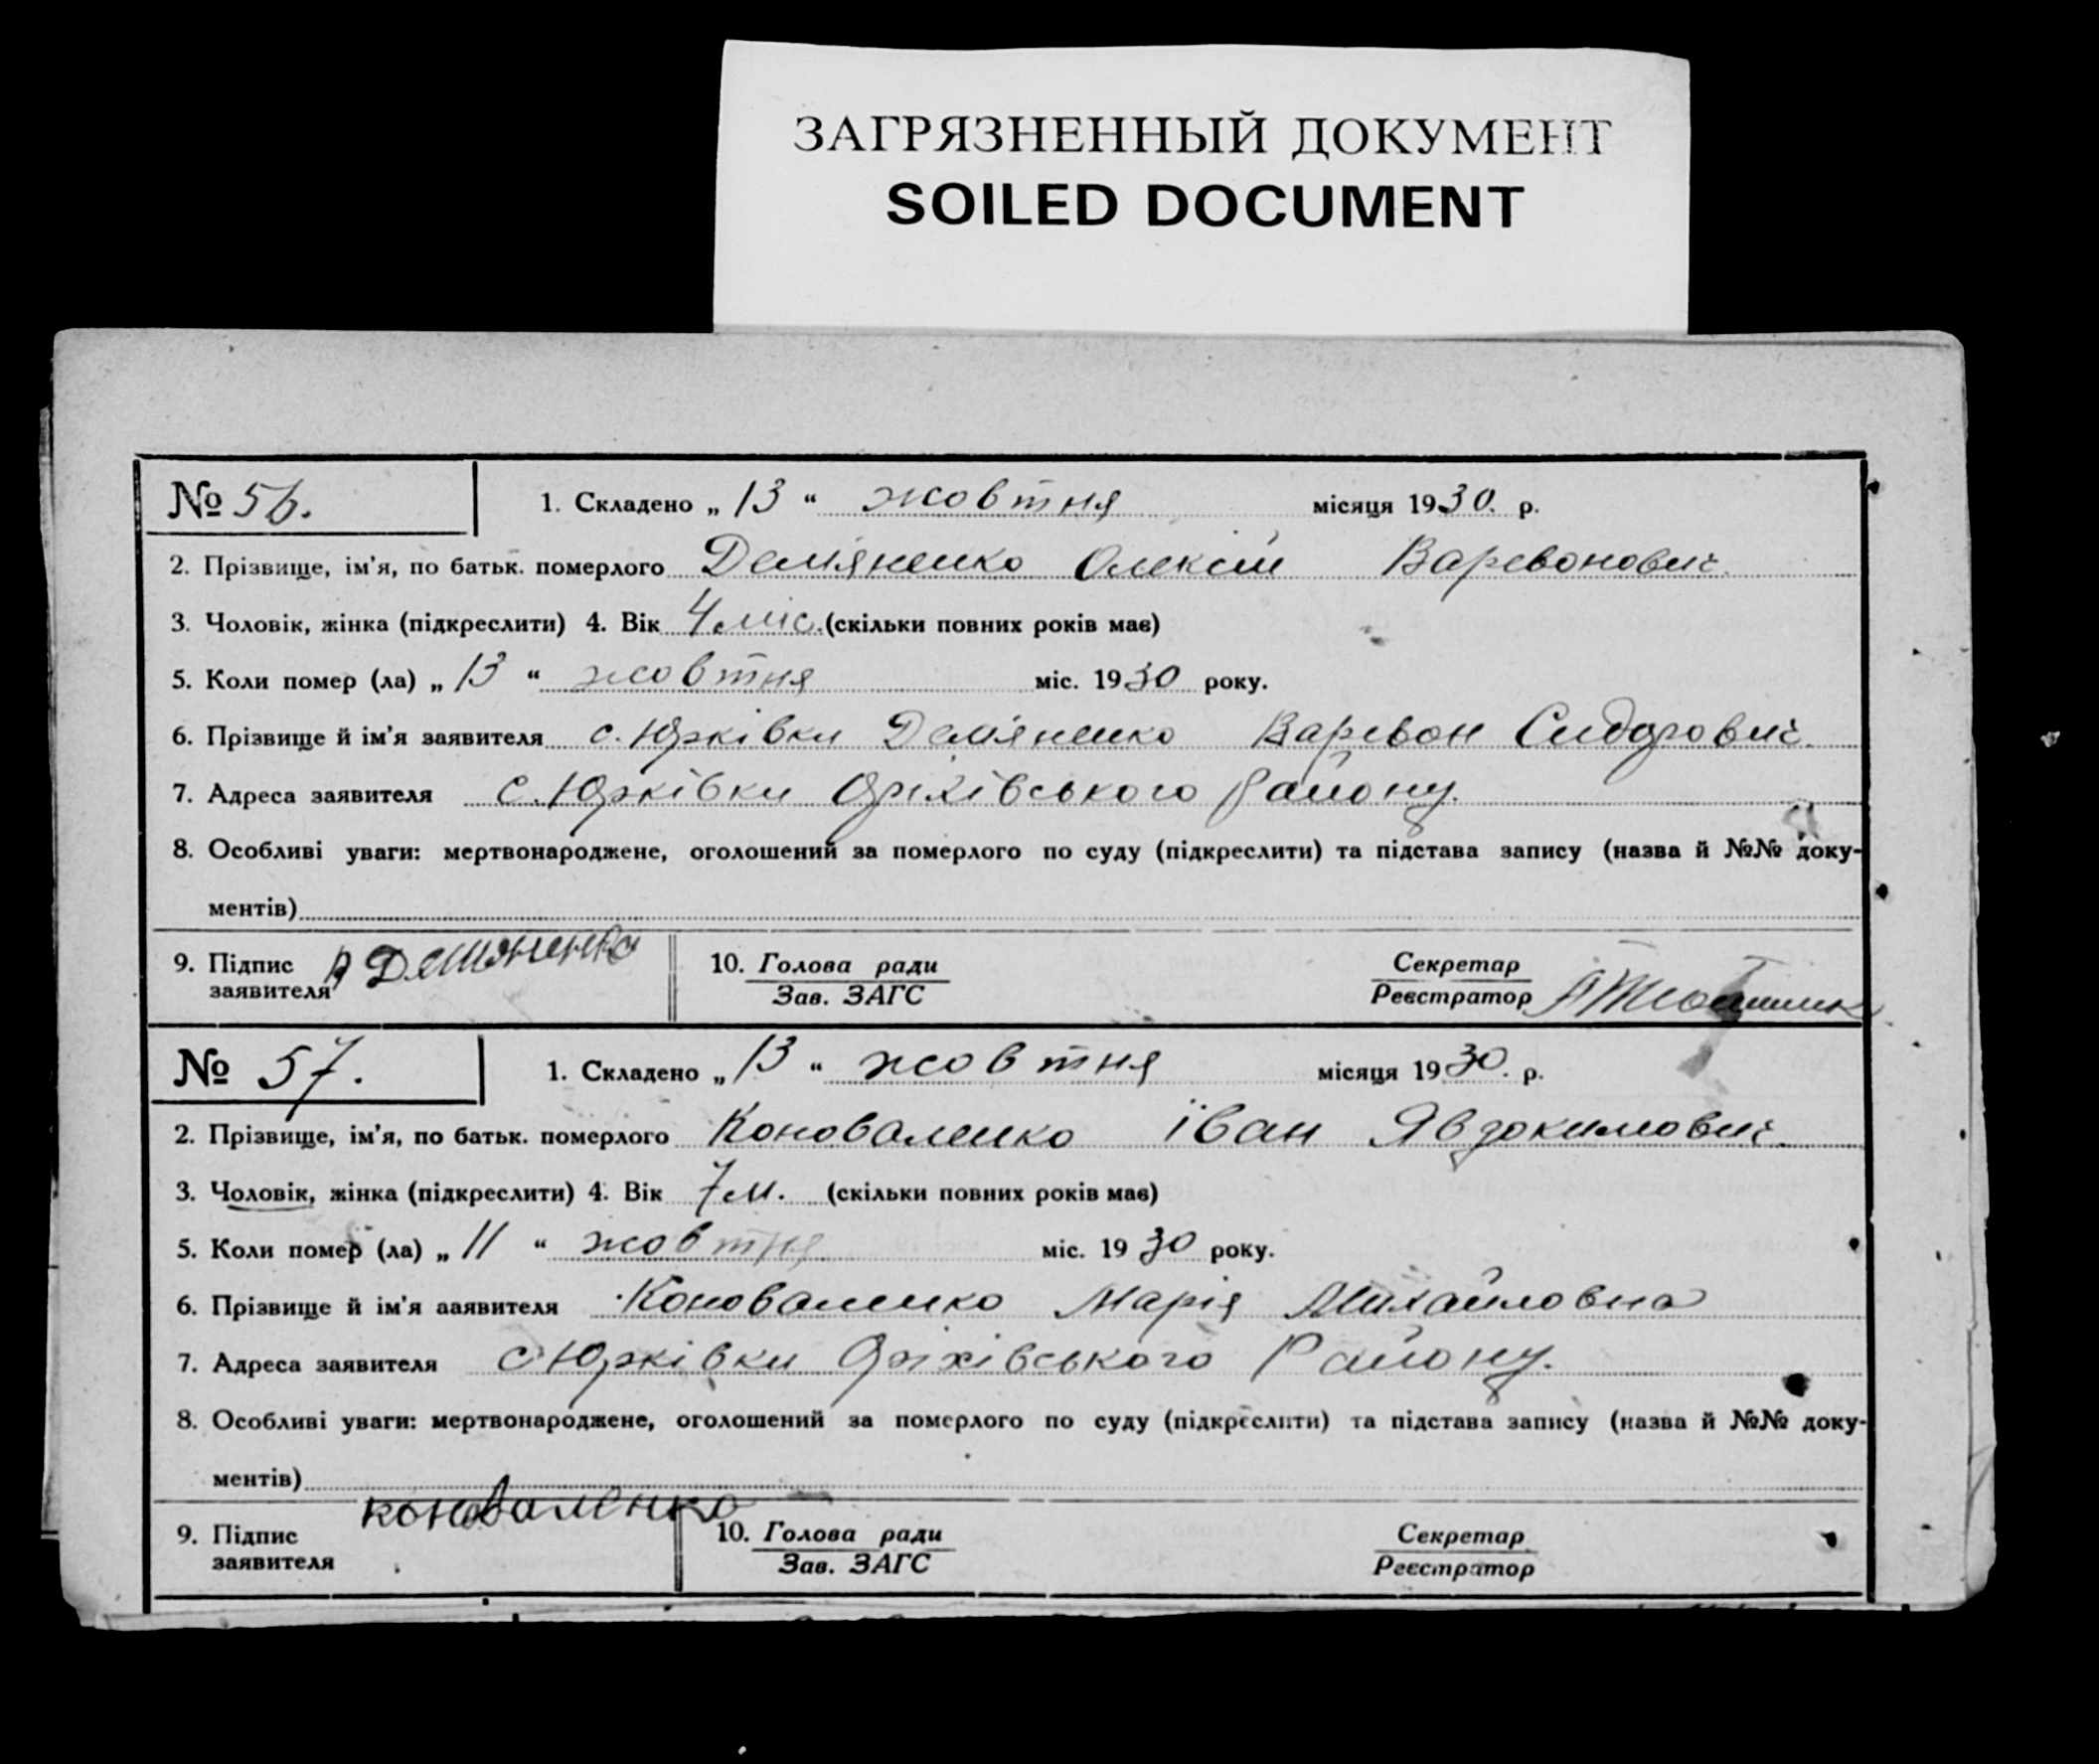 ЗАГРЯЗНЕННЫЙ ДОКУМЕНТ
SOILED DOCUMENT
№ 56. 1. Складено „ 13 “ жовтня місяця 1930. р.
2. Прізвище, ім'я, по батьк. померлого Дем'яненко Олексій Варивонович.
3. Чоловік, жінка (підкреслити) 4. Вік 4 міс. (скільки повних років має)
5. Коли помер (ла) „ 13 “ жовтня міс. 1930 року.
6. Прізвище й ім'я заявителя с. Юрківки Дем'яненко Варивон Сидорович.
7. Адреса заявителя с. Юрківки Оріхівського району.
8. Особливі уваги: мертвонароджене, оголошений за померлого по суду (підкреслити) та підстава запису (назва й №№ доку-
ментів)
9. Підпис заявителя Демяненко 10. Голова ради Зав. ЗАГС Секретар Реєстратор
№ 57. 1. Складено „ 13 “ жовтня місяця 1930. р.
2. Прізвище, ім'я, по батьк. померлого Коноваленко Іван Явдокимович.
3. Чоловік, жінка (підкреслити) 4. Вік 7 м. (скільки повних років має)
5. Коли помер (ла) „ 11 “ жовтня міс. 1930 року.
6. Прізвище й ім'я ааявителя Коноваленко Марія Михайловна
7. Адреса заявителя с Юрківки Оріхівського Району.
8. Особливі уваги: мертвонароджене, оголошений за померлого по суду (підкреслити) та підстава запису (назва й №№ доку-
ментів)
9. Підпис заявителя коноваленко 10. Голова ради Зав. ЗАГС Секретар Реєстратор